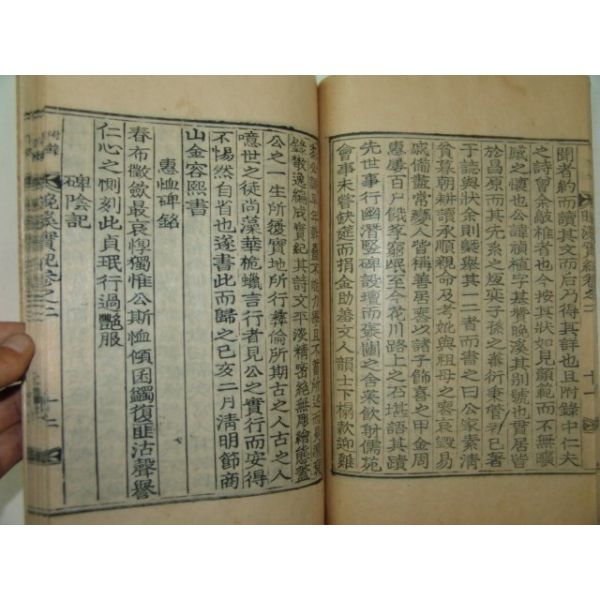 聞者約而讀其文而后乃得其詳也且附錄中仁夫
之詩曾余敲椎者也今按其狀如見顔範而不無曠
感之懷也公諱禎植字基瓚晩溪其別號也貫居皆
於昌原而其先系之烜赫子孫之善衍乘管尹已著
於誌與狀余則蔑擧其一二者于孫而書之曰公家素淸
貧暮朝耕讀承順親命及考妣與祖母之喪哀毀易
戚備盡常藥人皆稱善居喪以諸子飾喜之甲金周
恩屢百戶餓莩窮氓至今花川路上之石堪語其蹟
先世事行幽潛竪碑設壇而喪闢之舍采飮射儒苑
會事未嘗缺筵而捐金助善文人韻士下榻款迎雖
晩溪實紀卷之二
十一
錄散逸編成寶紀其詩文平淡精密絶無雕繪態盖
公之一生所復實地所行彛倫所期古之人古之人
噫世之徒尚藻華梔蠟言行者見公之實行而安得
不惕然自省也遂書此而歸之己亥二月淸明節商
山金容熙書
惠恤碑銘
春布徵歛最哀惸獨惟公斯恤傾囷蠲復匪沽聲譽
仁心之惻刻此貞珉行過艷服
碑陰記
晩溪實紀卷之二
十二